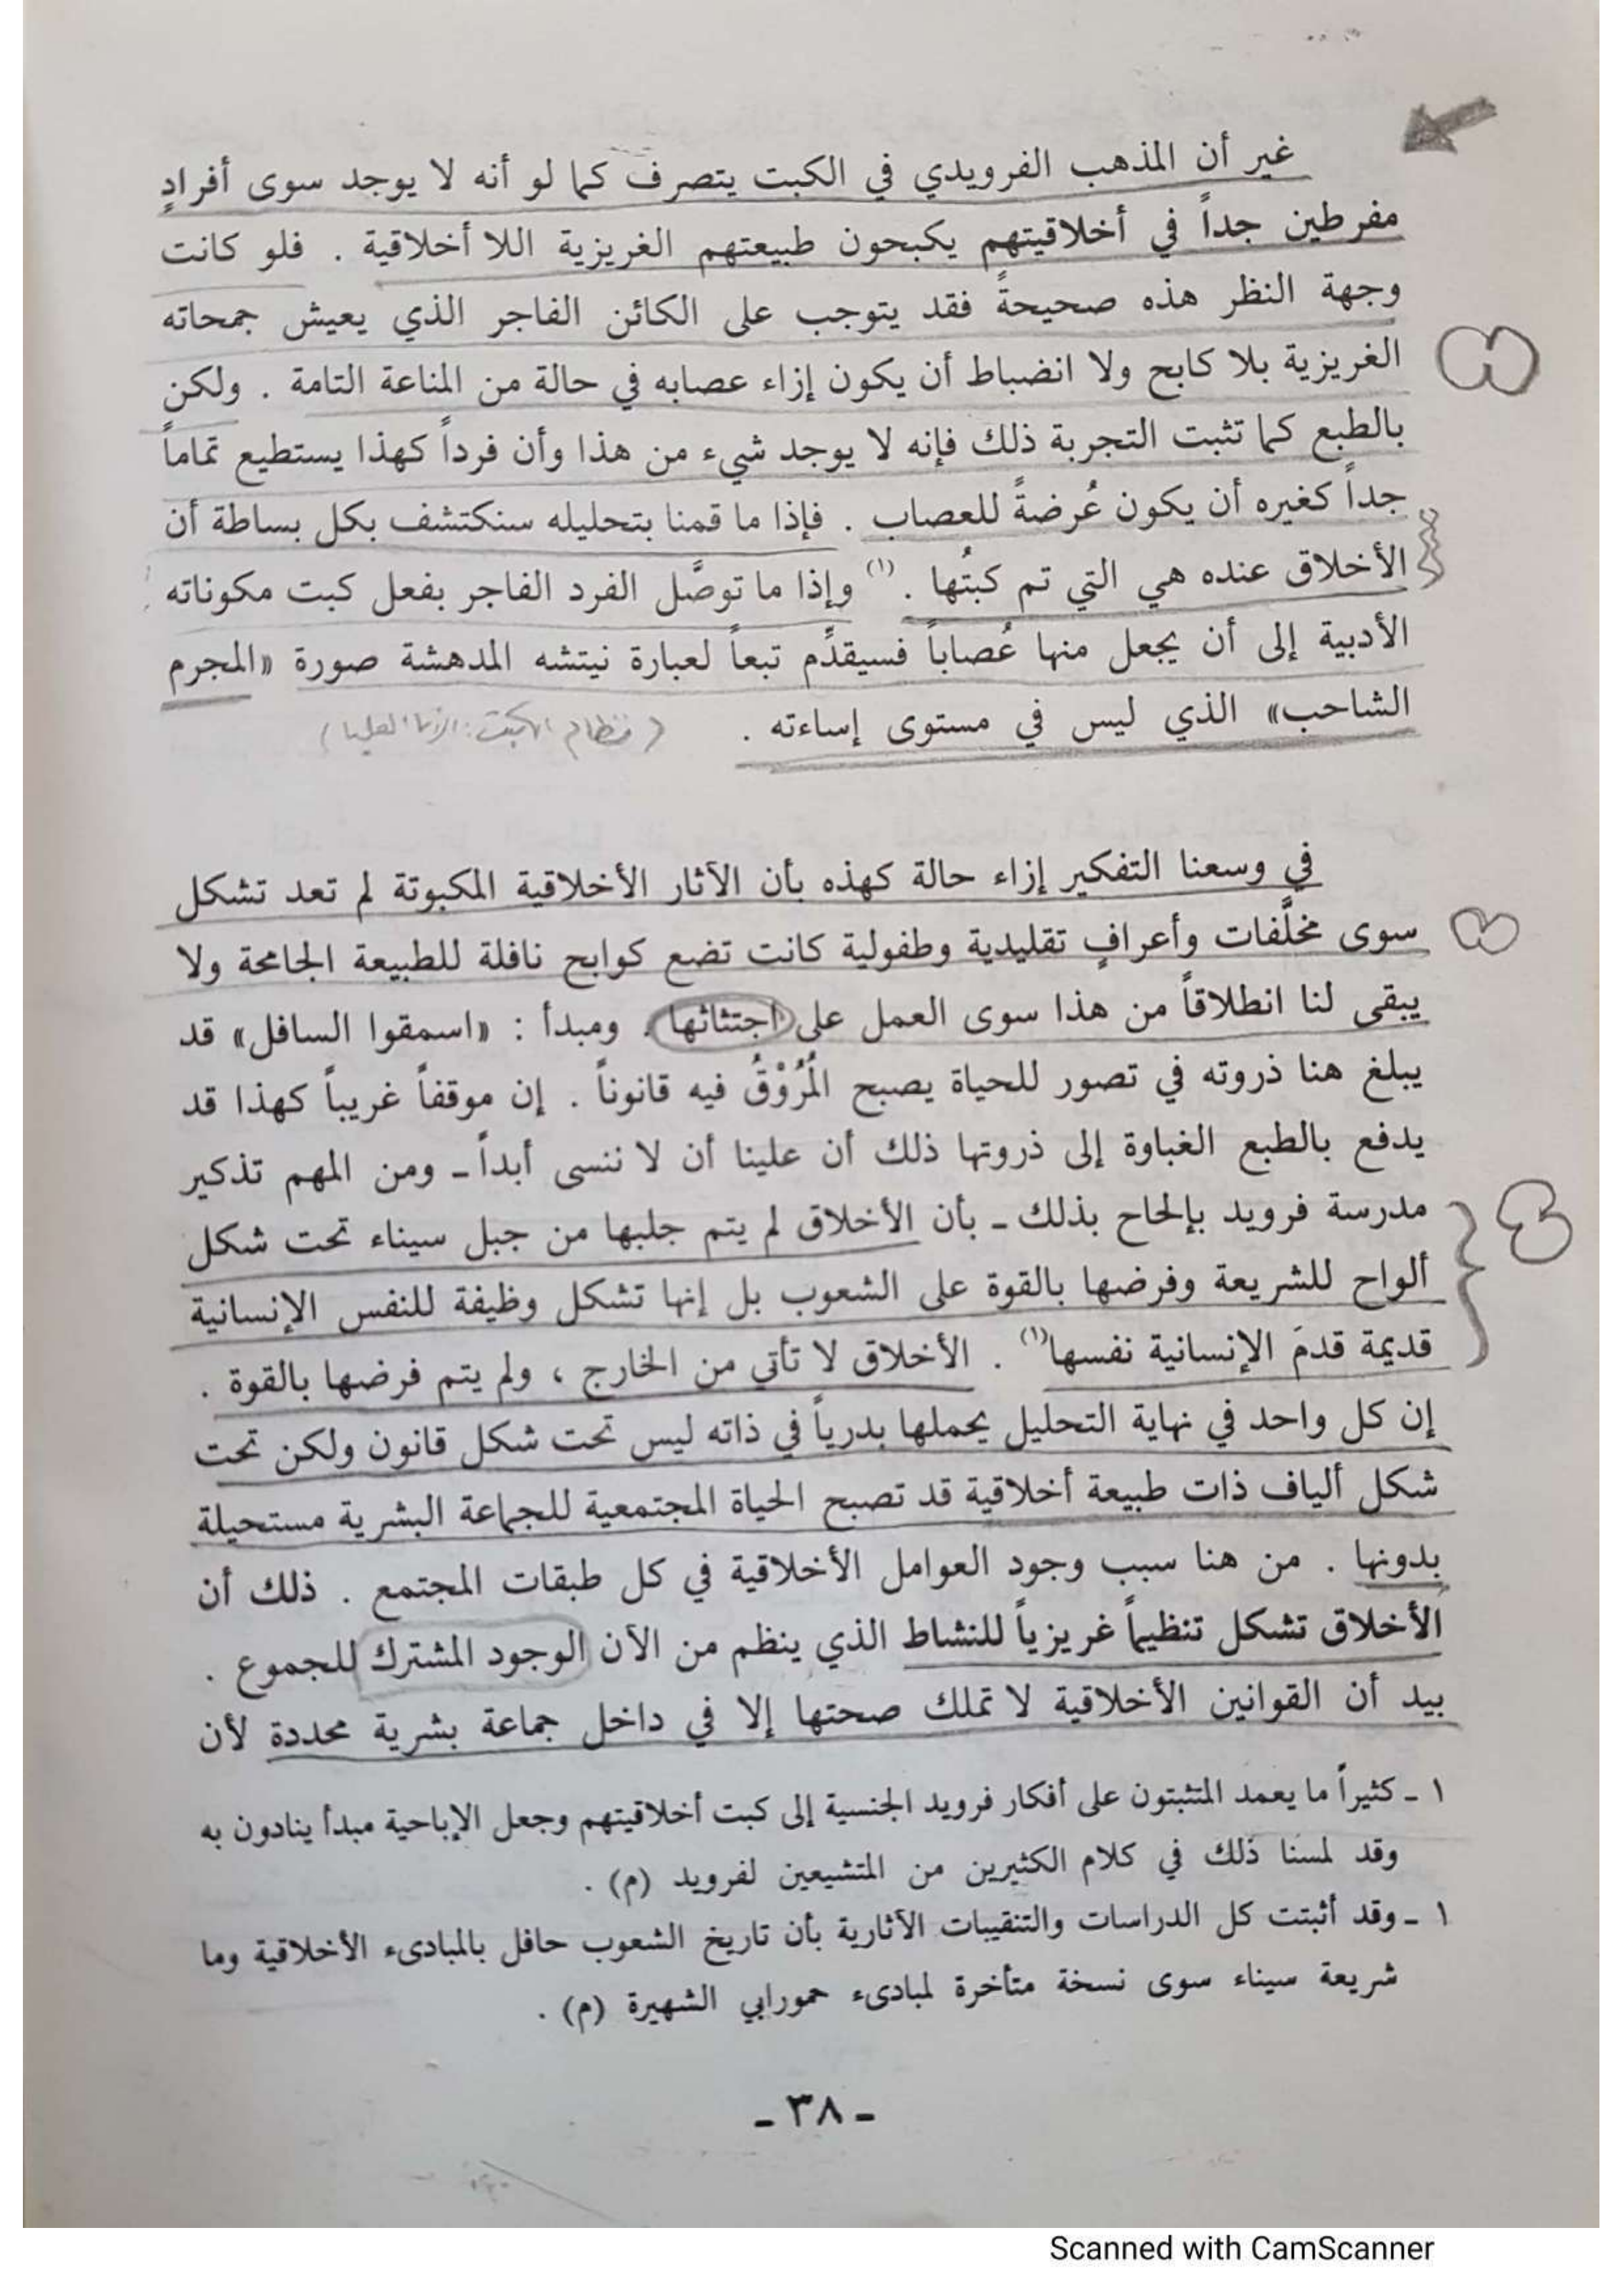 غير أن المذهب الفرويدي في الكبت يتصرف كما لو أنه لا يوجد سوى أفرادٍ
مفرطين جداً في أخلاقيتهم يكبحون طبيعتهم الغريزية اللا أخلاقية . فلو كانت
وجهة النظر هذه صحيحةً فقد يتوجب على الكائن الفاجر الذي يعيش جمحاته
الغريزية بلا كابح ولا انضباط أن يكون إزاء عصابه في حالة من المناعة التامة . ولكن
بالطبع كما تثبت التجربة ذلك فإنه لا يوجد شيء من هذا وأن فرداً كهذا يستطيع تماماً
جداً كغيره أن يكون عُرضةً للعصاب . فإذا ما قمنا بتحليله سنكتشف بكل بساطة أن
الأخلاق عنده هي التي تم كبتُها . (١) وإذا ما توصَّل الفرد الفاجر بفعل كبت مكوناته
الأدبية إلى أن يجعل منها عُصاباً فسيقدِّم تبعاً لعبارة نيتشه المدهشة صورة «المجرم
الشاحب» الذي ليس في مستوى إساءته . (نظام الكبت : الأنا العليا)
في وسعنا التفكير إزاء حالة كهذه بأن الآثار الأخلاقية المكبوتة لم تعد تشكل
سوى مخلَّفات وأعرافٍ تقليدية وطفولية كانت تضع كوابح نافلة للطبيعة الجامحة ولا
يبقى لنا انطلاقاً من هذا سوى العمل على اجتثاثها . ومبدأ : «اسمقوا السافل» قد
يبلغ هنا ذروته في تصور للحياة يصبح المُرُوْقُ فيه قانوناً . إن موقفاً غريباً كهذا قد
يدفع بالطبع الغباوة إلى ذروتها ذلك أن علينا أن لا ننسى أبداً ـ ومن المهم تذكير
مدرسة فرويد بإلحاح بذلك ـ بأن الأخلاق لم يتم جلبها من جبل سيناء تحت شكل
ألواح للشريعة وفرضها بالقوة على الشعوب بل إنها تشكل وظيفة للنفس الإنسانية
قديمة قدمَ الإنسانية نفسها(١) . الأخلاق لا تأتي من الخارج ، ولم يتم فرضها بالقوة .
إن كل واحد في نهاية التحليل يحملها بدرياً في ذاته ليس تحت شكل قانون ولكن تحت
شكل ألياف ذات طبيعة أخلاقية قد تصبح الحياة المجتمعية للجماعة البشرية مستحيلة
بدونها . من هنا سبب وجود العوامل الأخلاقية في كل طبقات المجتمع . ذلك أن
الأخلاق تشكل تنظيماً غريزياً للنشاط الذي ينظم من الآن الوجود المشترك للجموع .
بيد أن القوانين الأخلاقية لا تملك صحتها إلا في داخل جماعة بشرية محددة لأن
١ ـ كثيراً ما يعمد المتثبتون على أفكار فرويد الجنسية إلى كبت أخلاقيتهم وجعل الإباحية مبدأ ينادون به
وقد لمسنا ذلك في كلام الكثيرين من المتشيعين لفرويد (م) .
١ ـ وقد أثبتت كل الدراسات والتنقيبات الآثارية بأن تاريخ الشعوب حافل بالمبادىء الأخلاقية وما
شريعة سيناء سوى نسخة متأخرة لمبادىء حمورابي الشهيرة (م) .
ـ ٣٨ ـ
Scanned with CamScanner